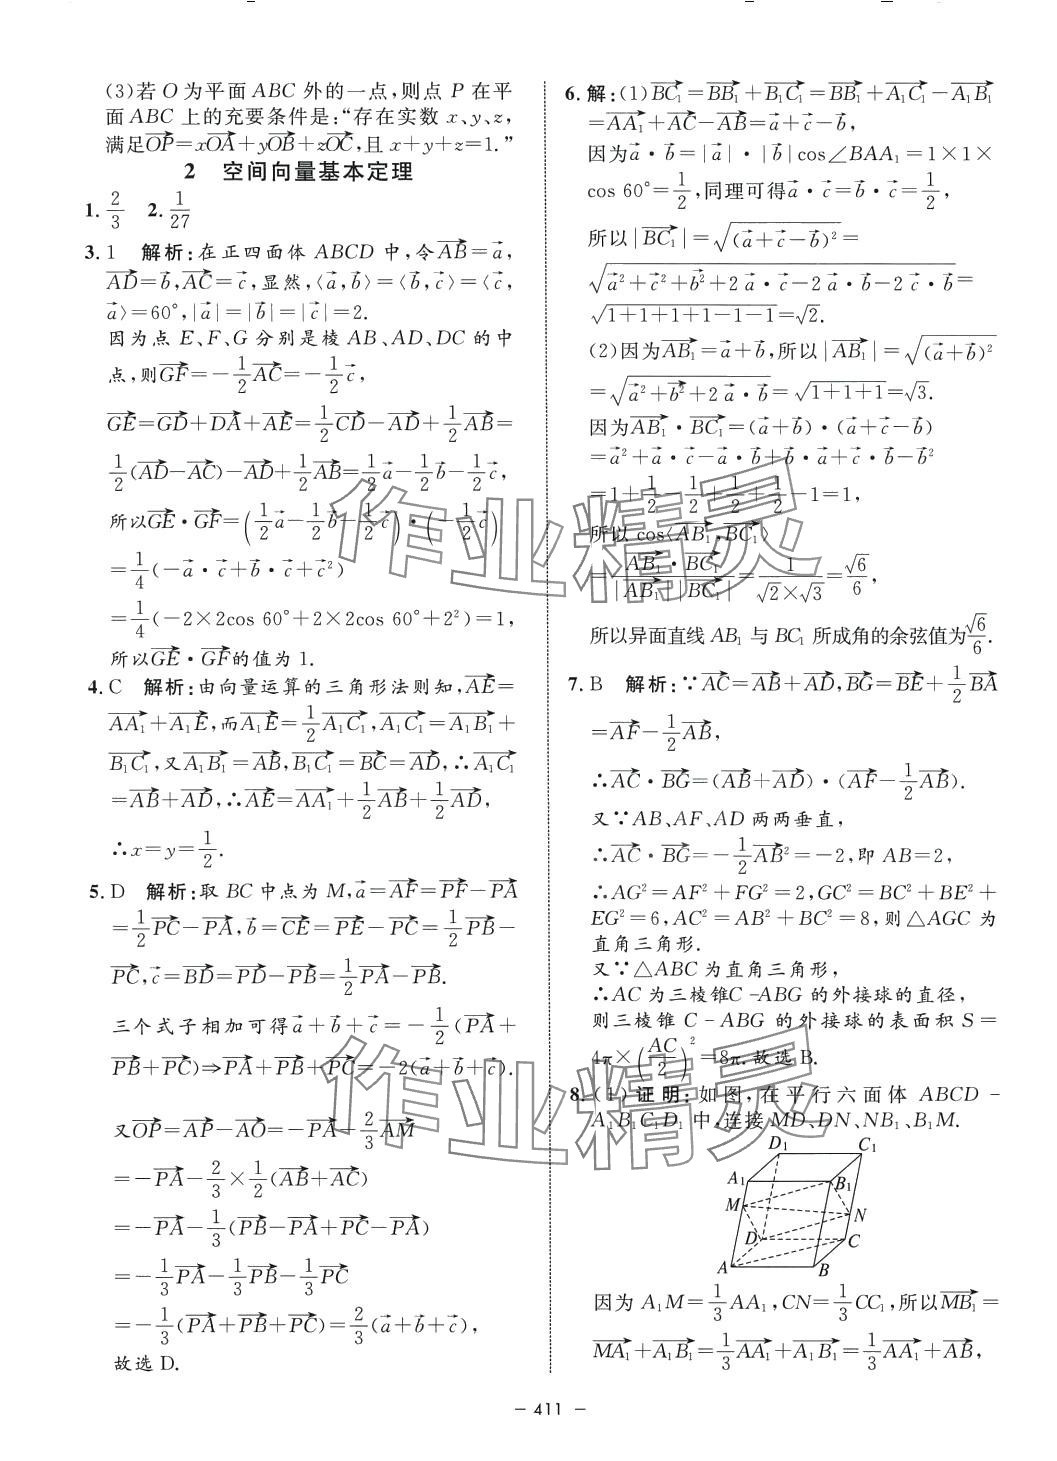 (3)若O为平面ABC外的一点,则点P在平
面ABC上的充要条件是:“存在实数x、y、z,
满足$\overrightarrow{OP}=x\overrightarrow{OA}+y\overrightarrow{OB}+z\overrightarrow{OC}$,且x+y+z=1.”
2 空间向量基本定理
1. $\frac{2}{3}$ 2. $\frac{1}{27}$
3. 1 解析:在正四面体ABCD中,令$\overrightarrow{AB}=\vec{a}$,
$\overrightarrow{AD}=\vec{b}$,$\overrightarrow{AC}=\vec{c}$,显然,⟨$\vec{a}$,$\vec{b}$⟩=⟨$\vec{b}$,$\vec{c}$⟩=⟨$\vec{c}$,
$\vec{a}$⟩=60°,|$\vec{a}$|=|$\vec{b}$|=|$\vec{c}$|=2.
因为点E、F、G分别是棱AB、AD、DC的中
点,则$\overrightarrow{GF}=-\frac{1}{2}\overrightarrow{AC}=-\frac{1}{2}\vec{c}$,
$\overrightarrow{GE}=\overrightarrow{GD}+\overrightarrow{DA}+\overrightarrow{AE}=\frac{1}{2}\overrightarrow{CD}-\overrightarrow{AD}+\frac{1}{2}\overrightarrow{AB}=$
$\frac{1}{2}(\overrightarrow{AD}-\overrightarrow{AC})-\overrightarrow{AD}+\frac{1}{2}\overrightarrow{AB}=\frac{1}{2}\vec{a}-\frac{1}{2}\vec{b}-\frac{1}{2}\vec{c}$,
所以$\overrightarrow{GE}\cdot\overrightarrow{GF}=\left(\frac{1}{2}\vec{a}-\frac{1}{2}\vec{b}-\frac{1}{2}\vec{c}\right)\cdot\left(-\frac{1}{2}\vec{c}\right)$
$=\frac{1}{4}(-\vec{a}\cdot\vec{c}+\vec{b}\cdot\vec{c}+\vec{c}^2)$
$=\frac{1}{4}(-2×2\cos 60°+2×2\cos 60°+2^2)=1$,
所以$\overrightarrow{GE}\cdot\overrightarrow{GF}$的值为1.
4. C 解析:由向量运算的三角形法则知,$\overrightarrow{AE}=$
$\overrightarrow{AA_1}+\overrightarrow{A_1E}$,而$\overrightarrow{A_1E}=\frac{1}{2}\overrightarrow{A_1C_1}$,$\overrightarrow{A_1C_1}=\overrightarrow{A_1B_1}+$
$\overrightarrow{B_1C_1}$,又$\overrightarrow{A_1B_1}=\overrightarrow{AB}$,$\overrightarrow{B_1C_1}=\overrightarrow{BC}=\overrightarrow{AD}$,∴$\overrightarrow{A_1C_1}$
$=\overrightarrow{AB}+\overrightarrow{AD}$,∴$\overrightarrow{AE}=\overrightarrow{AA_1}+\frac{1}{2}\overrightarrow{AB}+\frac{1}{2}\overrightarrow{AD}$,
∴$x=y=\frac{1}{2}$.
5. D 解析:取BC中点为M,$\vec{a}=\overrightarrow{AF}=\overrightarrow{PF}-\overrightarrow{PA}$
$=\frac{1}{2}\overrightarrow{PC}-\overrightarrow{PA}$,$\vec{b}=\overrightarrow{CE}=\overrightarrow{PE}-\overrightarrow{PC}=\frac{1}{2}\overrightarrow{PB}-$
$\overrightarrow{PC}$,$\vec{c}=\overrightarrow{BD}=\overrightarrow{PD}-\overrightarrow{PB}=\frac{1}{2}\overrightarrow{PA}-\overrightarrow{PB}$.
三个式子相加可得$\vec{a}+\vec{b}+\vec{c}=-\frac{1}{2}(\overrightarrow{PA}+$
$\overrightarrow{PB}+\overrightarrow{PC})⇒\overrightarrow{PA}+\overrightarrow{PB}+\overrightarrow{PC}=-2(\vec{a}+\vec{b}+\vec{c})$.
又$\overrightarrow{OP}=\overrightarrow{AP}-\overrightarrow{AO}=-\overrightarrow{PA}-\frac{2}{3}\overrightarrow{AM}$
$=-\overrightarrow{PA}-\frac{2}{3}×\frac{1}{2}(\overrightarrow{AB}+\overrightarrow{AC})$
$=-\overrightarrow{PA}-\frac{1}{3}(\overrightarrow{PB}-\overrightarrow{PA}+\overrightarrow{PC}-\overrightarrow{PA})$
$=-\frac{1}{3}\overrightarrow{PA}-\frac{1}{3}\overrightarrow{PB}-\frac{1}{3}\overrightarrow{PC}$
$=-\frac{1}{3}(\overrightarrow{PA}+\overrightarrow{PB}+\overrightarrow{PC})=\frac{2}{3}(\vec{a}+\vec{b}+\vec{c})$,
故选D.
6. 解:(1)$\overrightarrow{BC_1}=\overrightarrow{BB_1}+\overrightarrow{B_1C_1}=\overrightarrow{BB_1}+\overrightarrow{A_1C_1}-\overrightarrow{A_1B_1}$
$=\overrightarrow{AA_1}+\overrightarrow{AC}-\overrightarrow{AB}=\vec{a}+\vec{c}-\vec{b}$,
因为$\vec{a}\cdot\vec{b}=|\vec{a}|\cdot|\vec{b}|\cos∠BAA_1=1×1×$
$\cos 60°=\frac{1}{2}$,同理可得$\vec{a}\cdot\vec{c}=\vec{b}\cdot\vec{c}=\frac{1}{2}$,
所以$|\overrightarrow{BC_1}|=\sqrt{(\vec{a}+\vec{c}-\vec{b})^2}=$
$\sqrt{\vec{a}^2+\vec{c}^2+\vec{b}^2+2\vec{a}\cdot\vec{c}-2\vec{a}\cdot\vec{b}-2\vec{c}\cdot\vec{b}}=$
$\sqrt{1+1+1+1-1-1}=\sqrt{2}$.
(2)因为$\overrightarrow{AB_1}=\vec{a}+\vec{b}$,所以$|\overrightarrow{AB_1}|=\sqrt{(\vec{a}+\vec{b})^2}$
$=\sqrt{\vec{a}^2+\vec{b}^2+2\vec{a}\cdot\vec{b}}=\sqrt{1+1+1}=\sqrt{3}$.
因为$\overrightarrow{AB_1}\cdot\overrightarrow{BC_1}=(\vec{a}+\vec{b})\cdot(\vec{a}+\vec{c}-\vec{b})$
$=\vec{a}^2+\vec{a}\cdot\vec{c}-\vec{a}\cdot\vec{b}+\vec{b}\cdot\vec{a}+\vec{c}\cdot\vec{b}-\vec{b}^2$
$=1+\frac{1}{2}-\frac{1}{2}+\frac{1}{2}+\frac{1}{2}-1=1$,
所以$\cos⟨\overrightarrow{AB_1},\overrightarrow{BC_1}⟩$
$=\frac{\overrightarrow{AB_1}\cdot\overrightarrow{BC_1}}{|\overrightarrow{AB_1}||\overrightarrow{BC_1}|}=\frac{1}{\sqrt{2}×\sqrt{3}}=\frac{\sqrt{6}}{6}$,
所以异面直线$AB_1$与$BC_1$所成角的余弦值为$\frac{\sqrt{6}}{6}$.
7. B 解析:∵$\overrightarrow{AC}=\overrightarrow{AB}+\overrightarrow{AD}$,$\overrightarrow{BG}=\overrightarrow{BE}+\frac{1}{2}\overrightarrow{BA}$
$=\overrightarrow{AF}-\frac{1}{2}\overrightarrow{AB}$,
∴$\overrightarrow{AC}\cdot\overrightarrow{BG}=(\overrightarrow{AB}+\overrightarrow{AD})\cdot(\overrightarrow{AF}-\frac{1}{2}\overrightarrow{AB})$.
又∵AB、AF、AD两两垂直,
∴$\overrightarrow{AC}\cdot\overrightarrow{BG}=-\frac{1}{2}\overrightarrow{AB}^2=-2$,即AB=2,
∴$AG^2=AF^2+FG^2=2$,$GC^2=BC^2+BE^2+$
$EG^2=6$,$AC^2=AB^2+BC^2=8$,则△AGC为
直角三角形.
又∵△ABC为直角三角形,
∴AC为三棱锥C-ABG的外接球的直径,
则三棱锥C-ABG的外接球的表面积S=
$4π×\left(\frac{AC}{2}\right)^2=8π$.故选B.
8. (1)证明:如图,在平行六面体ABCD-
$A_1B_1C_1D_1$中,连接MD、DN、$NB_1$、$B_1M$.
$D_1$ $C_1$
$A_1$ $B_1$
M N
D C
A B
因为$A_1M=\frac{1}{3}AA_1$,$CN=\frac{1}{3}CC_1$,所以$\overrightarrow{MB_1}=$
$\overrightarrow{MA_1}+\overrightarrow{A_1B_1}=\frac{1}{3}\overrightarrow{AA_1}+\overrightarrow{A_1B_1}=\frac{1}{3}\overrightarrow{AA_1}+\overrightarrow{AB}$,
– 411 –
作业精灵
作业精灵